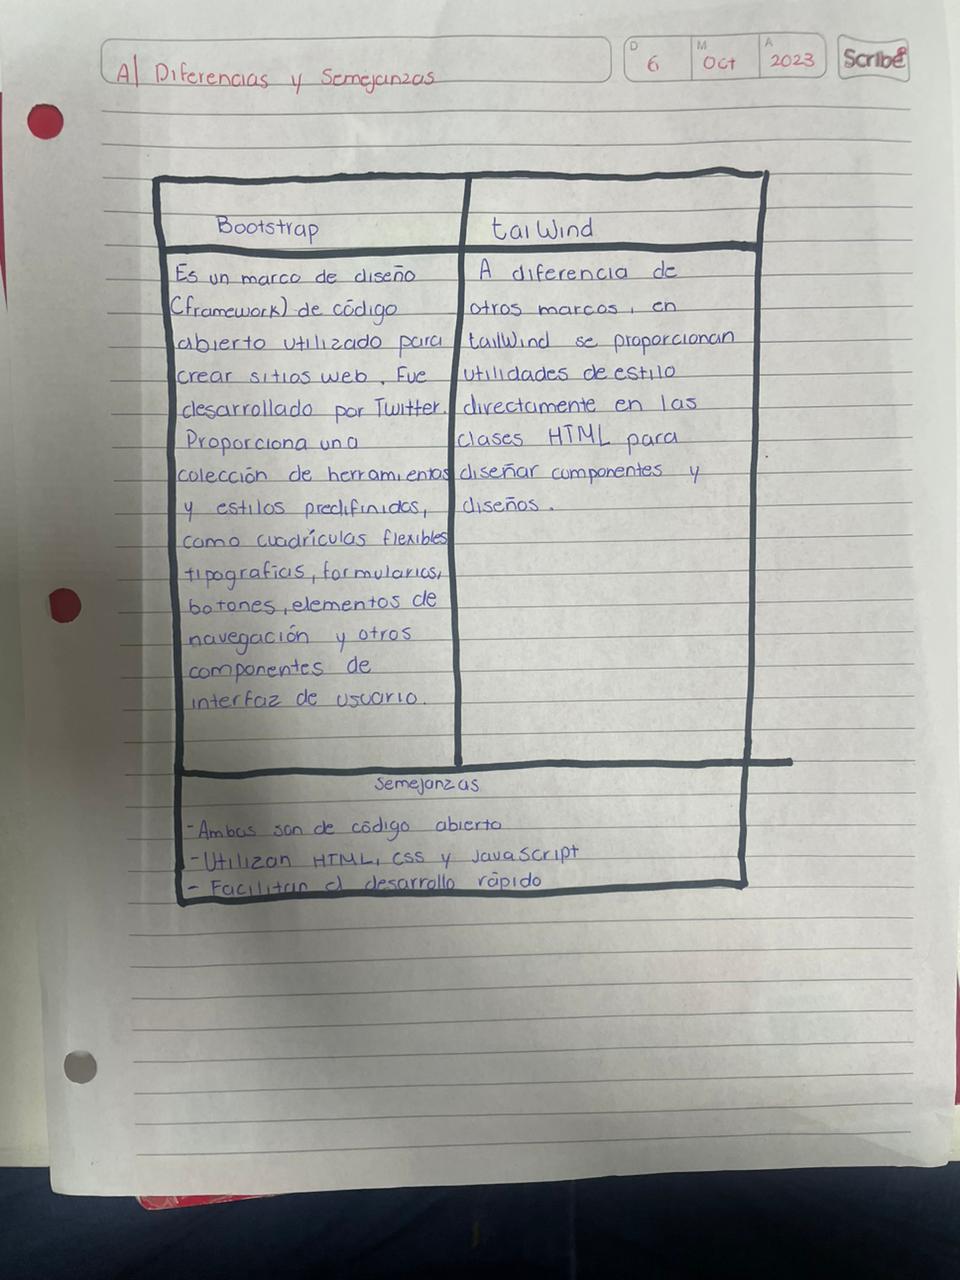 A| Diferencias y Semejanzas
D 6 M Oct A 2023
Scribe
Bootstrap
tailWind
Es un marco de diseño
(framework) de código
abierto utilizado para
crear sitios web. Fue
desarrollado por Twitter.
Proporciona una
colección de herramientas
y estilos predifinidos,
como cuadrículas flexibles
tipografias, formularios,
botones, elementos de
navegación y otros
componentes de
interfaz de usuario.
A diferencia de
otros marcos, en
tailWind se proporcionan
utilidades de estilo
directamente en las
clases HTML para
diseñar componentes y
diseños.
Semejanzas
- Ambas son de código abierto
- Utilizan HTML, CSS y JavaScript
- Facilitan el desarrollo rápido